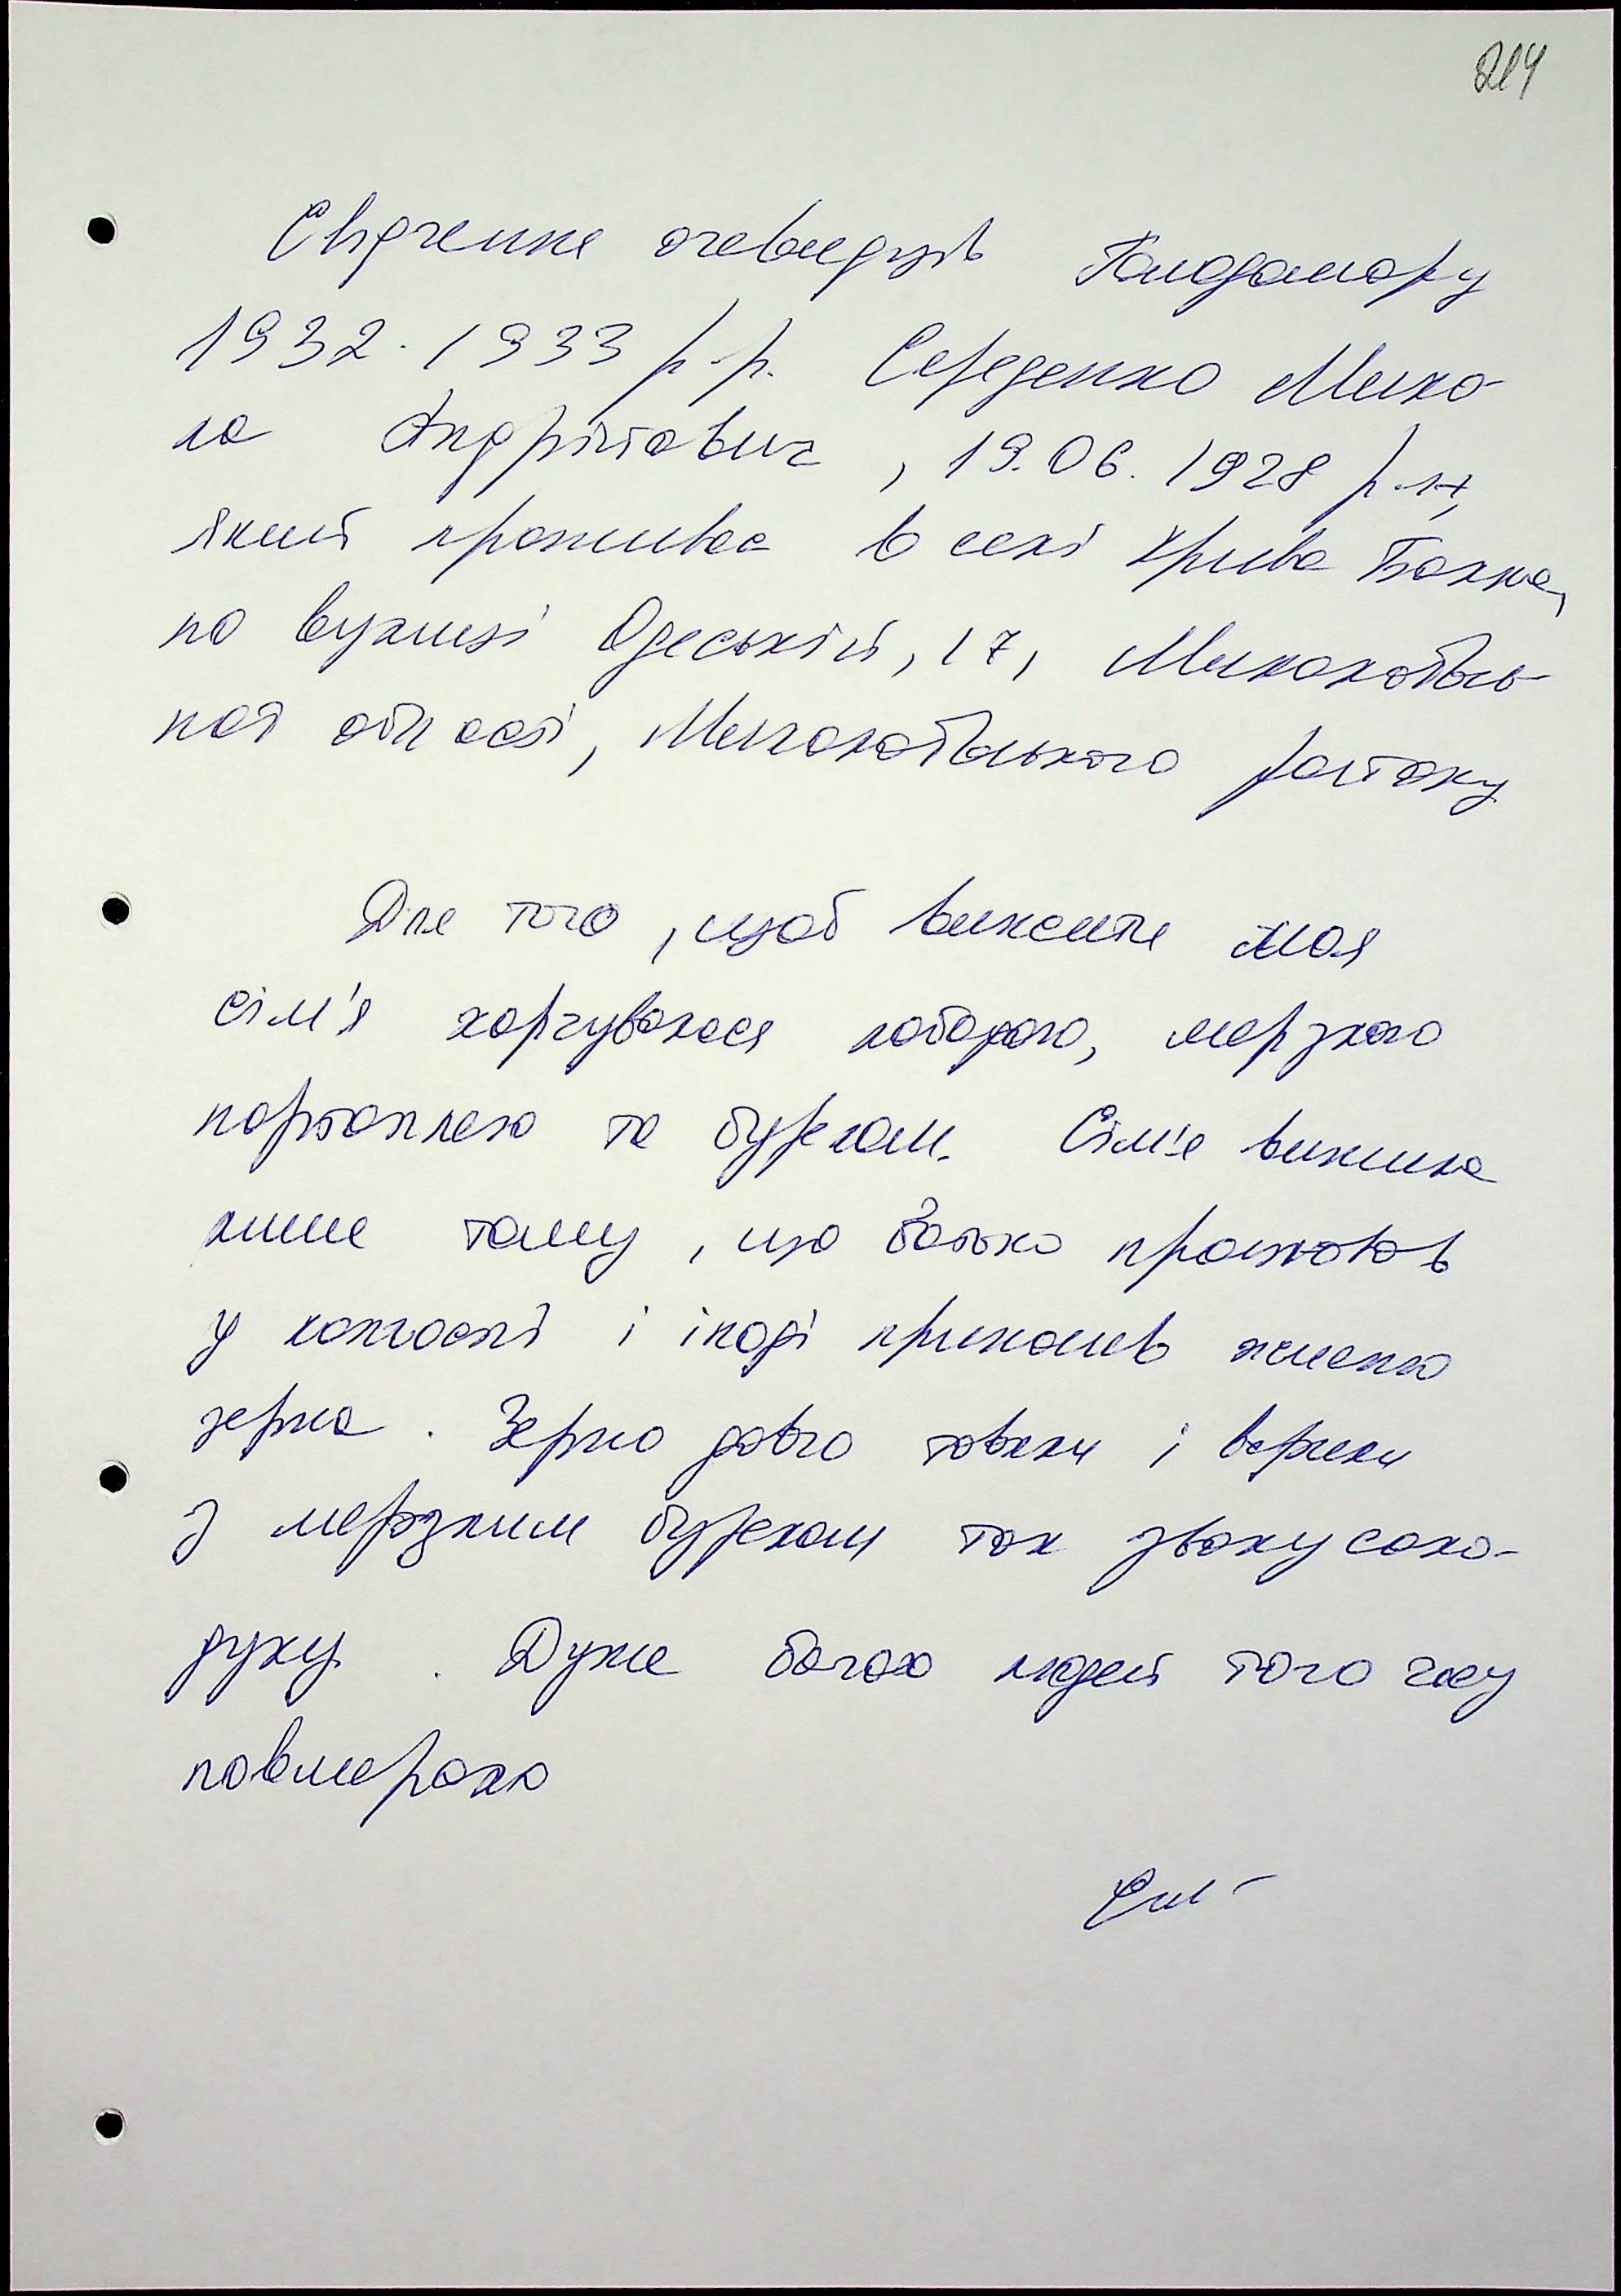 214
Свідчення очевидців Голодомору
1932-1933 р.р. Середенко Мико-
ла Андрійович, 19.06.1928 р.н,
який проживає в селі Крива Балка,
по вулиці Одеській, 17, Миколаївсь-
кої області, Миколаївського району
Для того, щоб вижити моя
сім'я харчувалася лободою, мерзлою
картоплею та буряком. Сім'я вижила
лише тому, що батько працював
у колгоспі і іноді приносив жменю
зерна. Зерно довго товкли і варили
з мерзлим буряком так звану сало-
духу. Дуже багато людей того часу
повмирало